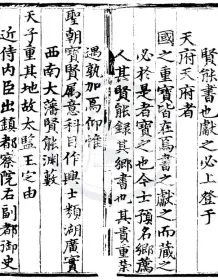 賢能書也獻之必上登于
天府天府者
國之重寶皆在焉書獻之而藏之
必於是者寶之也今士預名鄉薦
人其賢能錄其鄉書也其貴重索
遇孰加焉仰惟
聖朝寶賢爲意科目作興士類湖廣實
西南大藩賢能淵藪
天子重其地故太監王定由
近侍內臣出鎮都察院右副都御史